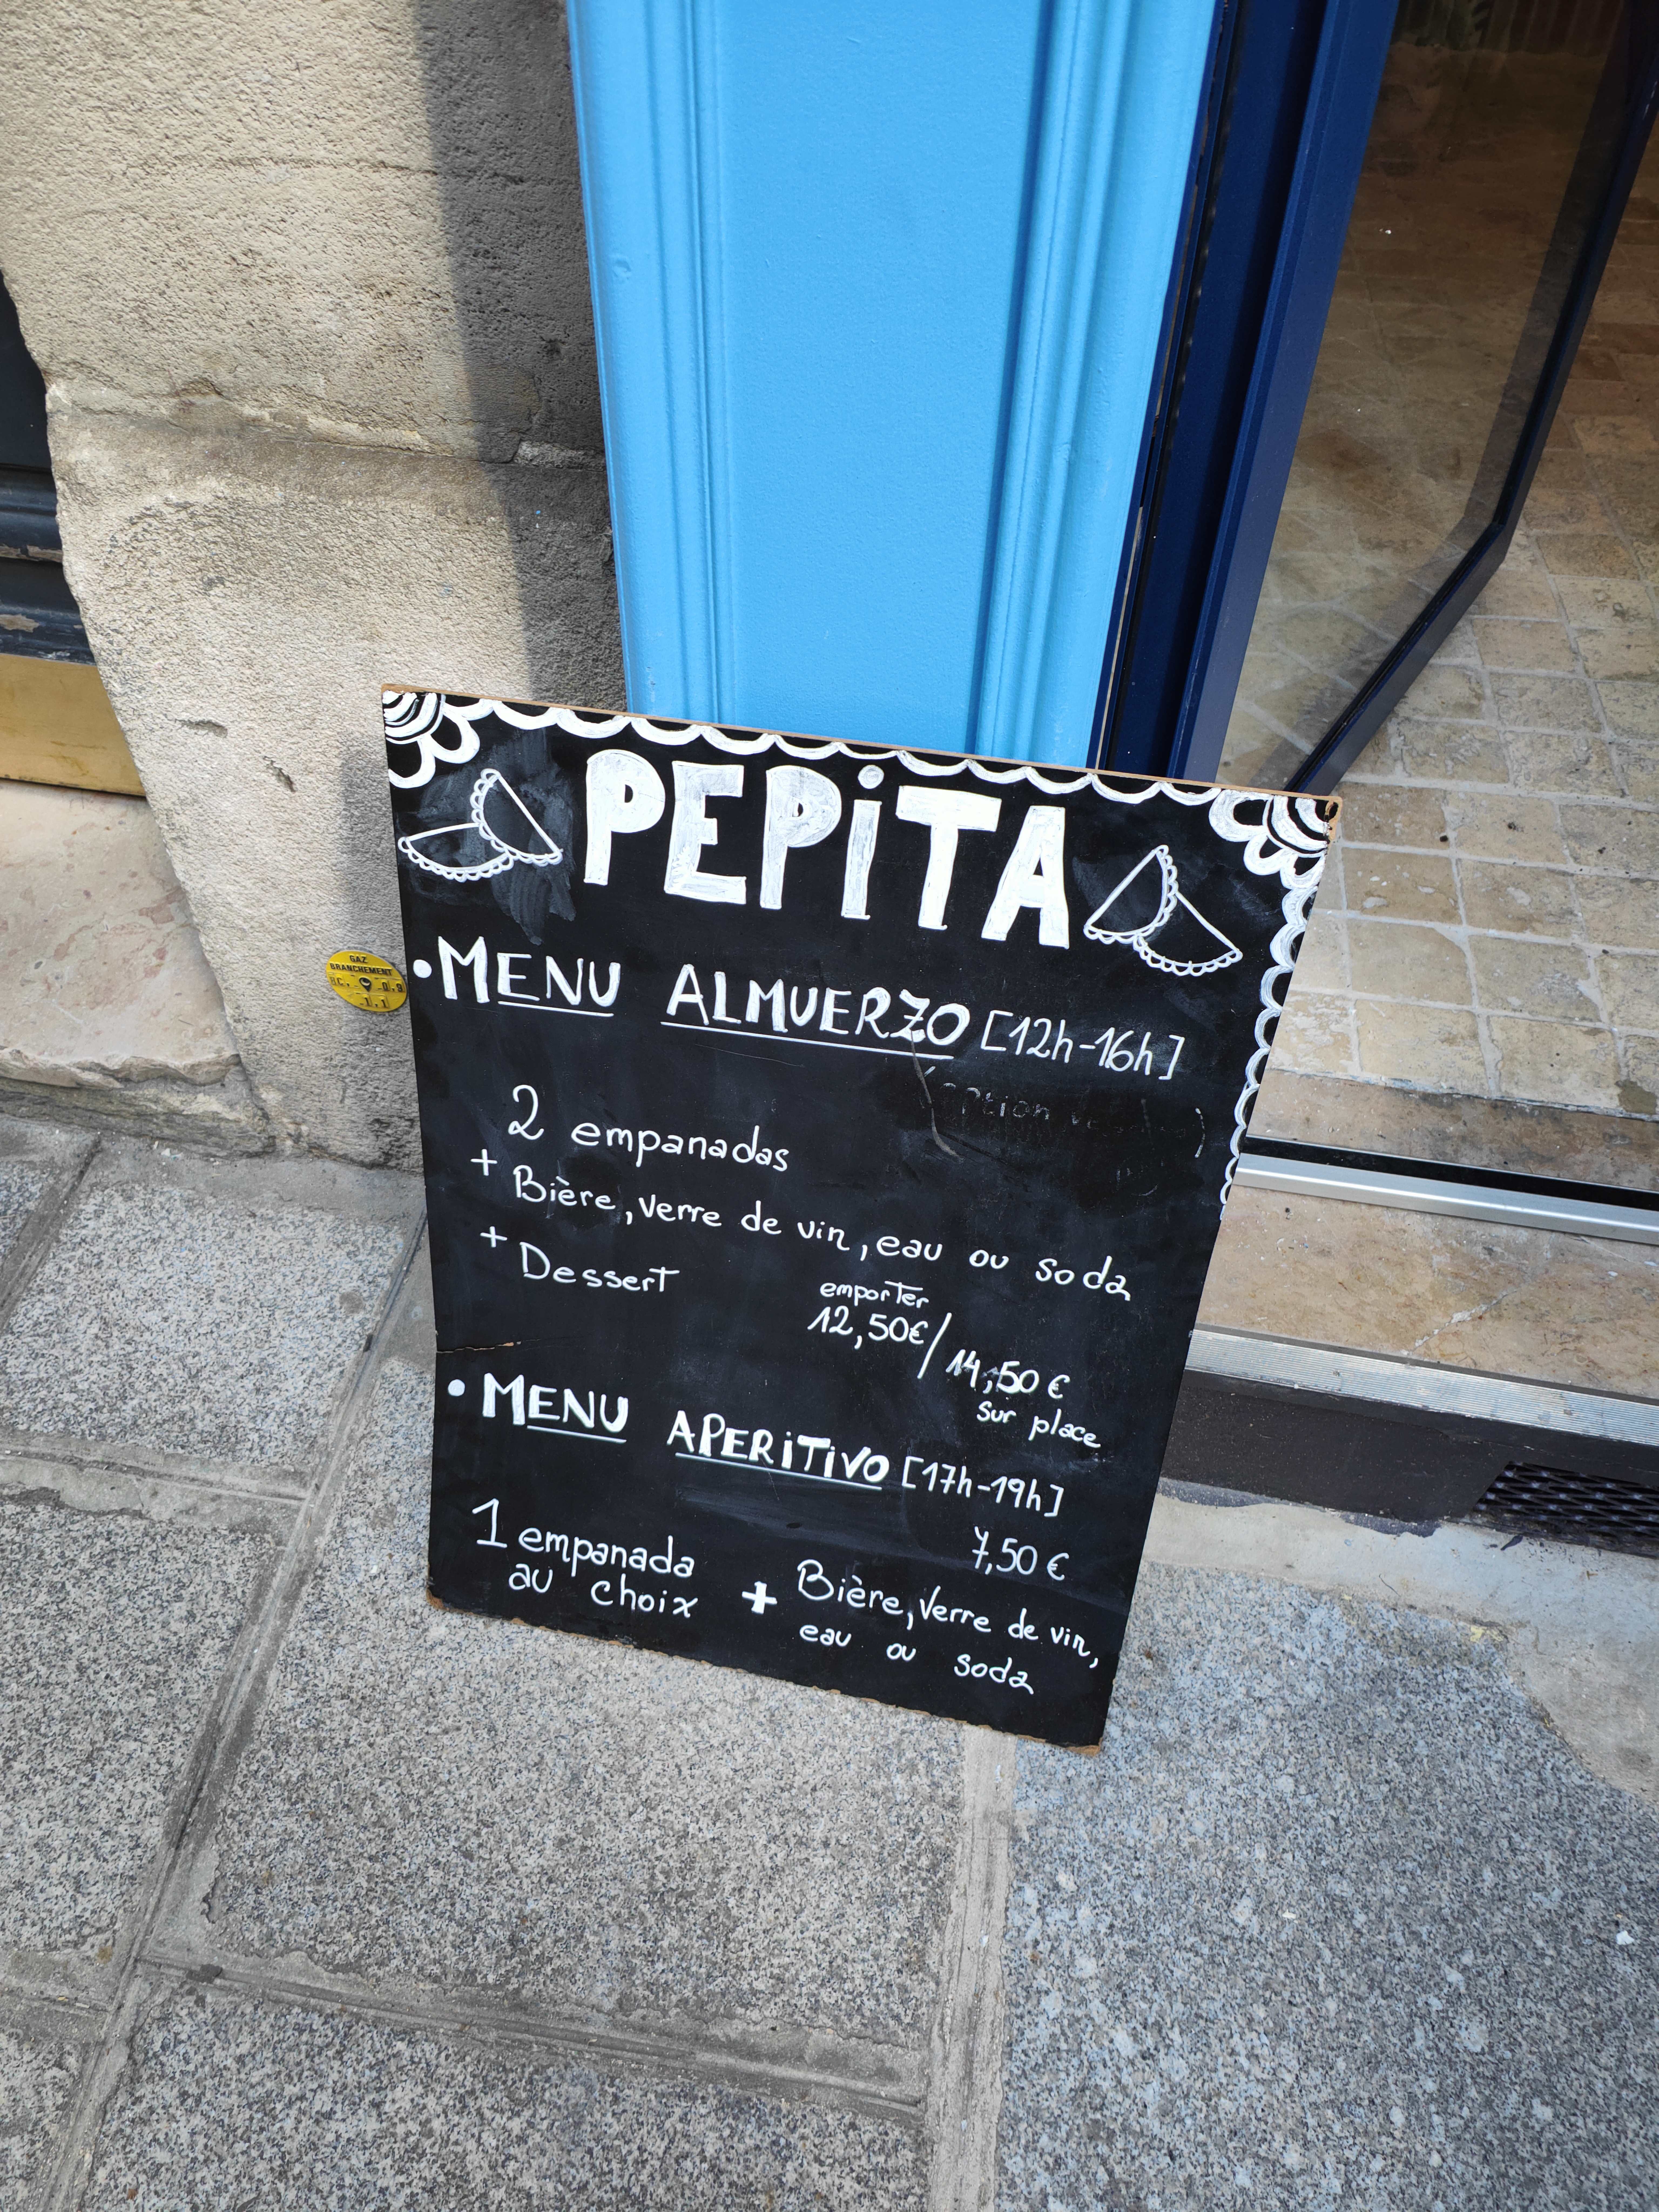 PEPiTA
• MENU ALMUERZO [12h-16h]
(option
2 empanadas
+ Bière, verre de vin, eau ou soda
+ Dessert
emporter
12,50€/14,50€
sur place
• MENU APERiTiVO [17h-19h]
7,50€
1 empanada
au choix
+ Bière, Verre de vin,
eau ou soda
GAZ
BRANCHEMENT